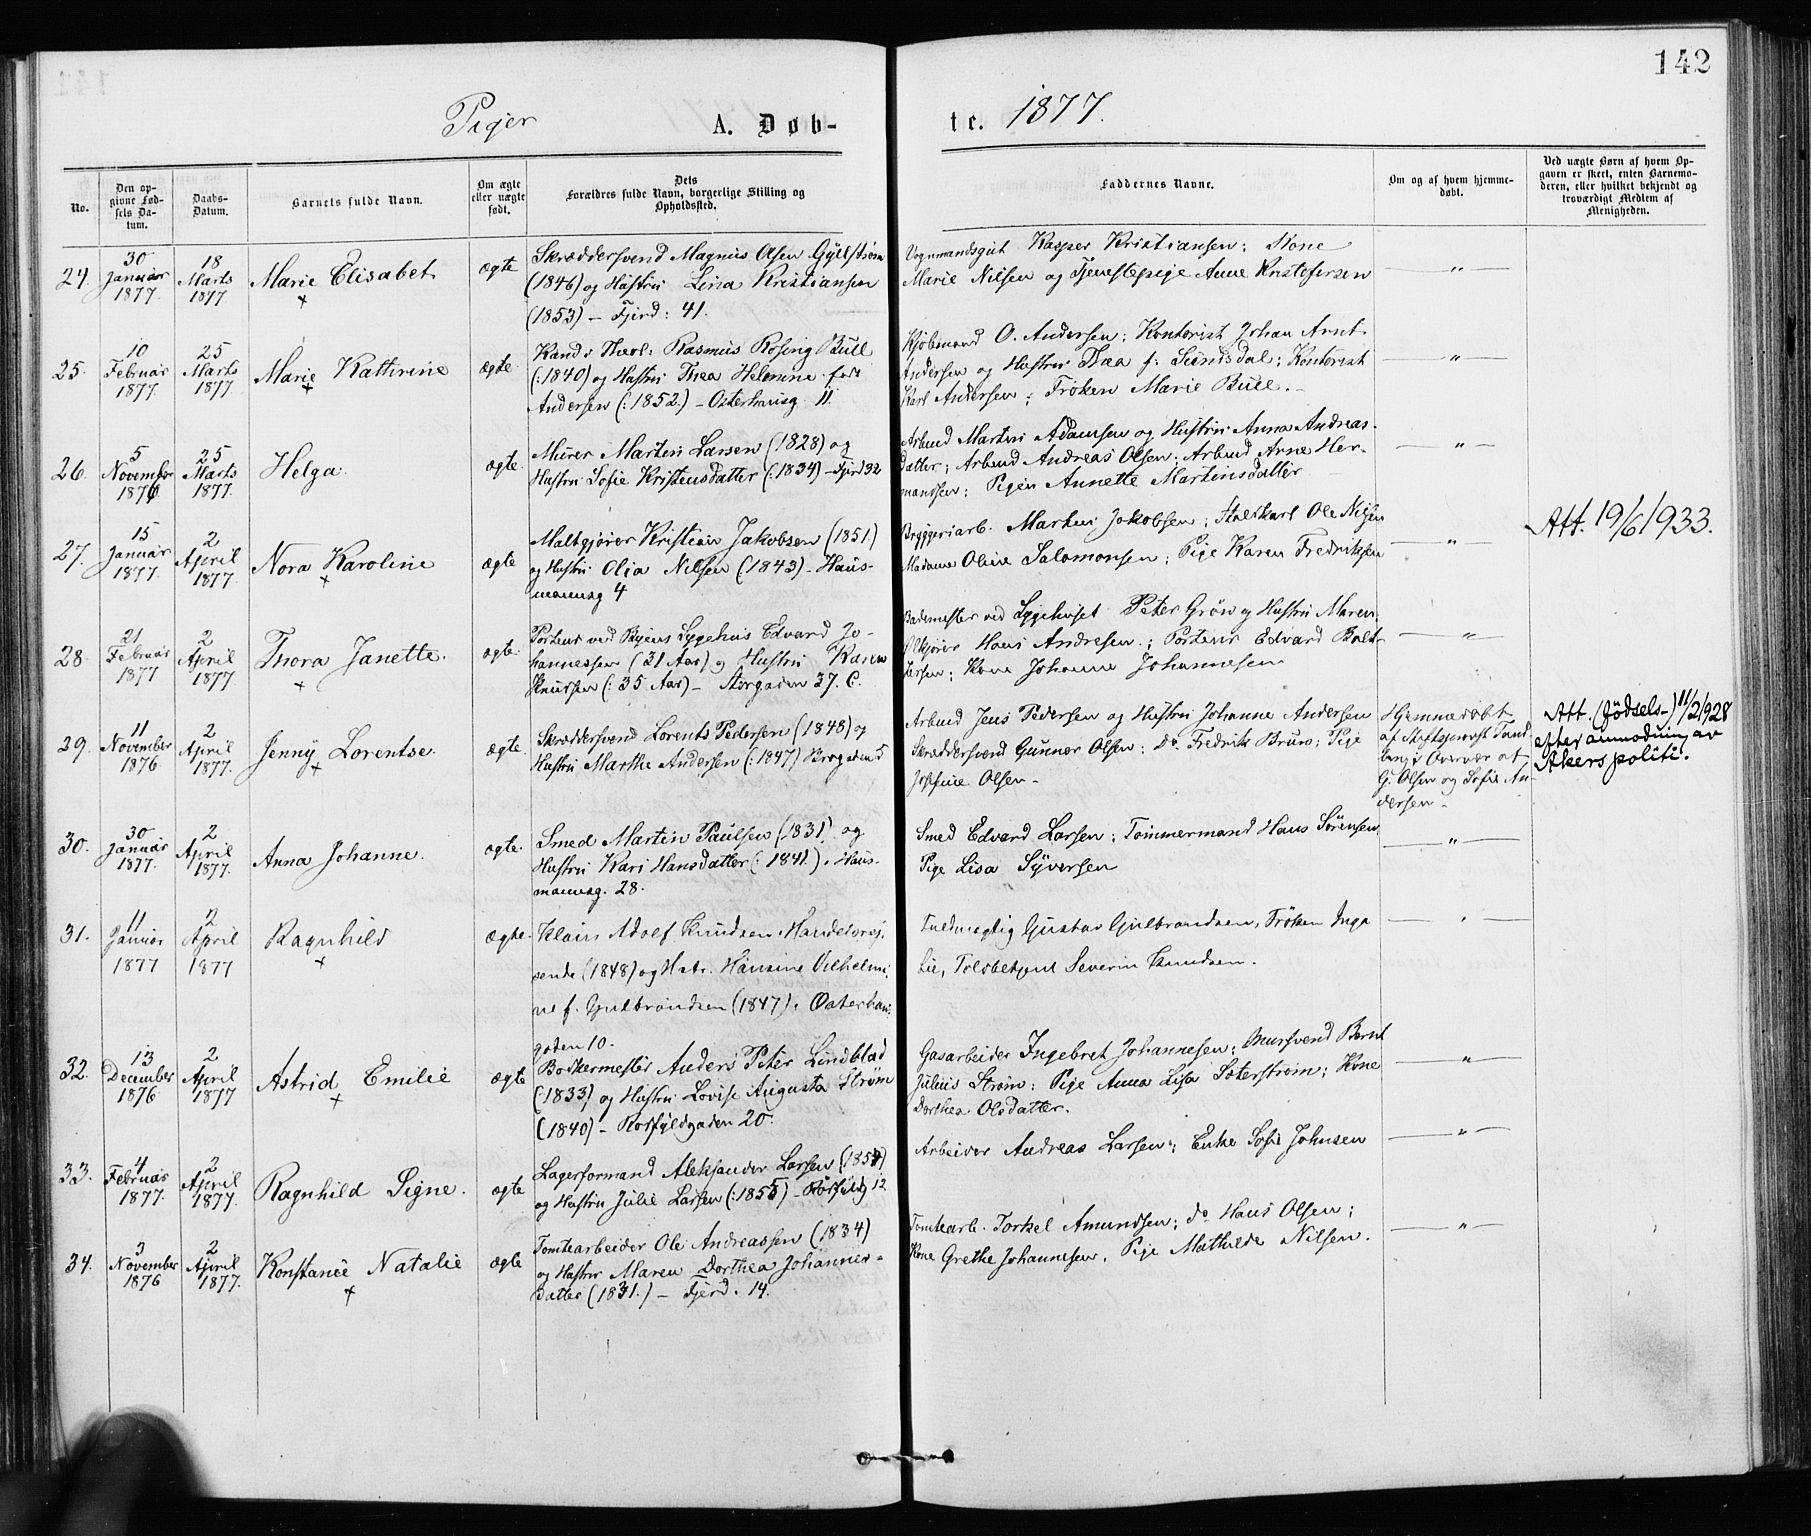 142
Piger A. Døb- te. 1877.
No.
Den opgivne Fødsels Datum.
Daabs-Datum.
Barnets fulde Navn.
Om ægte eller uægte født.
Dets Forældres fulde Navn, borgerlige Stilling og Opholdssted.
Faddernes Navne.
Om og af hvem hjemmedøbt.
Ved uægte Børn af hvem Opgaven er skeet, enten Barnemoderen, eller hvilket bekjendt og troværdigt Medlem af Menigheden.
24. 30 Januar 1877. 18 Marts 1877 Marie Elisabet ægte
Skræddersvend Magnus Olsen Gyllstrøm
(1846) og Hustru Lina Kristiansen
(1853) – Fjerd: 41.
Vognmandsgut Kasper Kristiansen; Kone
Marie Nilsen og Tjenestepige Anne Kristofersen
— " —
25. 10 Februar 1877. 25 Marts 1877. Marie Kathrine ægte.
Kand. Theol: Rasmus Rosing Bull
(:1840) og Hustru Thea Helmine født
Andersen (:1852.) – Osterhausg 11.
Kjøbmand O. Andersen; Kontorist Johan Arnt
Andersen og Hustru Thea f. Sundsdal; Kontorist
Karl Andersen; Frøken Marie Bull. –
— " —
26. 5 November 1876. 25 Marts 1877. Helga. ægte.
Murer Martin Larsen (1828) og
Hustru Sofie Kristensdatter (:1834) – Fjerd 32
Arbmd Martin Adamsen og Hustru Anna Andreas-
datter; Arbmd Andreas Olsen; Arbmd Arne Her-
manssen; Pigen Annette Martinsdatter
— " —
27. 15 Januar 1877. 2 April 1877 Nora Karoline ægte
Maltgjører Kristian Jakobsen (1851.)
og Hustru Olia Nilsen (:1843) – Haus-
mannsg 4
Bryggeriarb. Martin Jakobsen; Staldkarl Ole Nilsen
Madame Oline Salomonsen; Pige Karen Fredriksen
— " —
Att. 19/6 1933.
28. 21 Februar 1877 2 April 1877. Thora Janette. ægte.
Portner ved Byens Sygehus Edvard Jo-
hannessen (31 Aar) og Hustru Karen
Knudsen (:35 Aar) – Storgaden 37. C.
Bademester ved Sygehuset Peter Grøn og Hustru Maren;
Ølkjører Hans Andresen; Portner Edvard
Kone Johanne Johannesen
— " —
29. 11 November 1876 2 April 1877. Jenny Lorentse. ægte.
Skræddersvend Lorents Pedersen (1848) og
Hustru Marthe Andersen (:1847) Brogaden 5
Arbmd Jens Pedersen og Hustru Johanne Andersen
Skræddersvend Gunner Olsen; Do. Fredrik Bruun; Pige
Josefine Olsen –
Hjemmedøbt
af Stiftsprovst Tand-
berg i Overvær af
G. Olsen og Sofie An-
dersen –
Att. (Fødsels-) 11/2 1928
efter anmodning av
Akers politi.
30. 30 Januar 1877. 2 April 1877. Anna Johanne. ægte.
Smed Martin Paulsen (1831) og
Hustru Kari Hansdatter (:1841.). Haus-
mannsg. 28.
Smed Edvard Larsen; Tømmermand Hans Sørensen
Pige Lisa Syversen
— " —
31. 11 Januar 1877 2 April 1877 Ragnhild ægte.
Klaus Adolf Knudsen, Handelsrej-
sende (1848) og Hstr. Hansine Vilhelmi-
ne f. Gulbrandsen (1847). Osterhaus-
gaden 10.
Fuldmægtig Gustav Gulbrandsen, Frøken Inga
Lie, Toldbetjent Severin Knudsen.
— " —
32. 13 December 1876 2 April 1877 Astrid Emilie ægte
Bødkermester Anders Peter Lindblad
(:1833) og Hustru Lovise Augusta Strøm
(1840) – Rosfyldgaden 20.
Gasarbeider Ingebret Johannesen; Mursvend Bernt
Julius Strøm; Pige Anna Lisa Søterstrøm; Kone
Dorthea Olsdatter.
— " —
33. 4 Februar 1877. 2 April 1877. Ragnhild Signe. ægte
Lagerformand Aleksander Larsen (1854)
og Hustru Julie Larsen (:1855) – Rosfyldg 12
Arbeider Andreas Larsen; Enke Sofie Johnsen
— " —
34. 3 November 1876 2 April 1877. Konstance Natalie ægte
Tomtearbeider Ole Andreassen (1834)
og Hustru Maren Dorthea Johannes-
datter (1831.) – Fjerd. 14.
Tomtearb. Torkel Amundsen; do Hans Olsen;
Kone Grethe Johannesen, Pige Mathilde Nilsen.
— " —